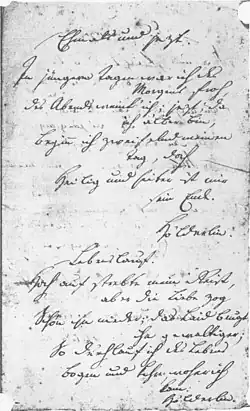 Ehmals und jetzt.
In jüngern Tagen war ich des
Morgens froh,
des Abends weint' ich; jetzt, da
ich älter bin,
beginn ich zweifelnd meinen
Tag, doch
Heilig und heiter ist mir
sein Ende.
Hölderlin.
Lebenslauf.
Hoch auf strebte mein Geist,
aber die Liebe zog
Schön ihn nieder; das Leid beugt
ihn gewaltiger;
So durchlauf ich des Lebens
Bogen und kehre, woher ich
kam.
Hölderlin.